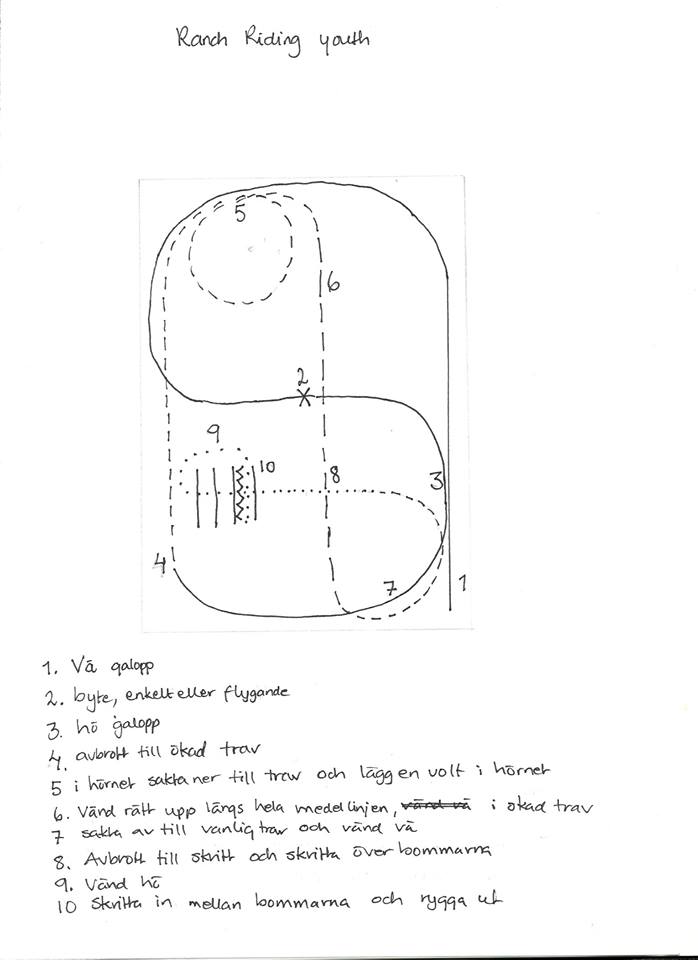 Ranch Riding youth
5
6
2
9
10
8
3
4
7
1
1. Vä galopp
2. byte, enkelt eller flygande
3. hö galopp
4. avbrott till ökad trav
5 i hörnet sakta ner till trav och lägg en volt i hörnet
6. Vänd rätt upp längs hela medellinjen, vänd vä i ökad trav
7 sakta av till vanlig trav och vänd vä
8. Avbrott till skritt och skritta över bommarna
9. Vänd hö
10 Skritta in mellan bommarna och rygga ut